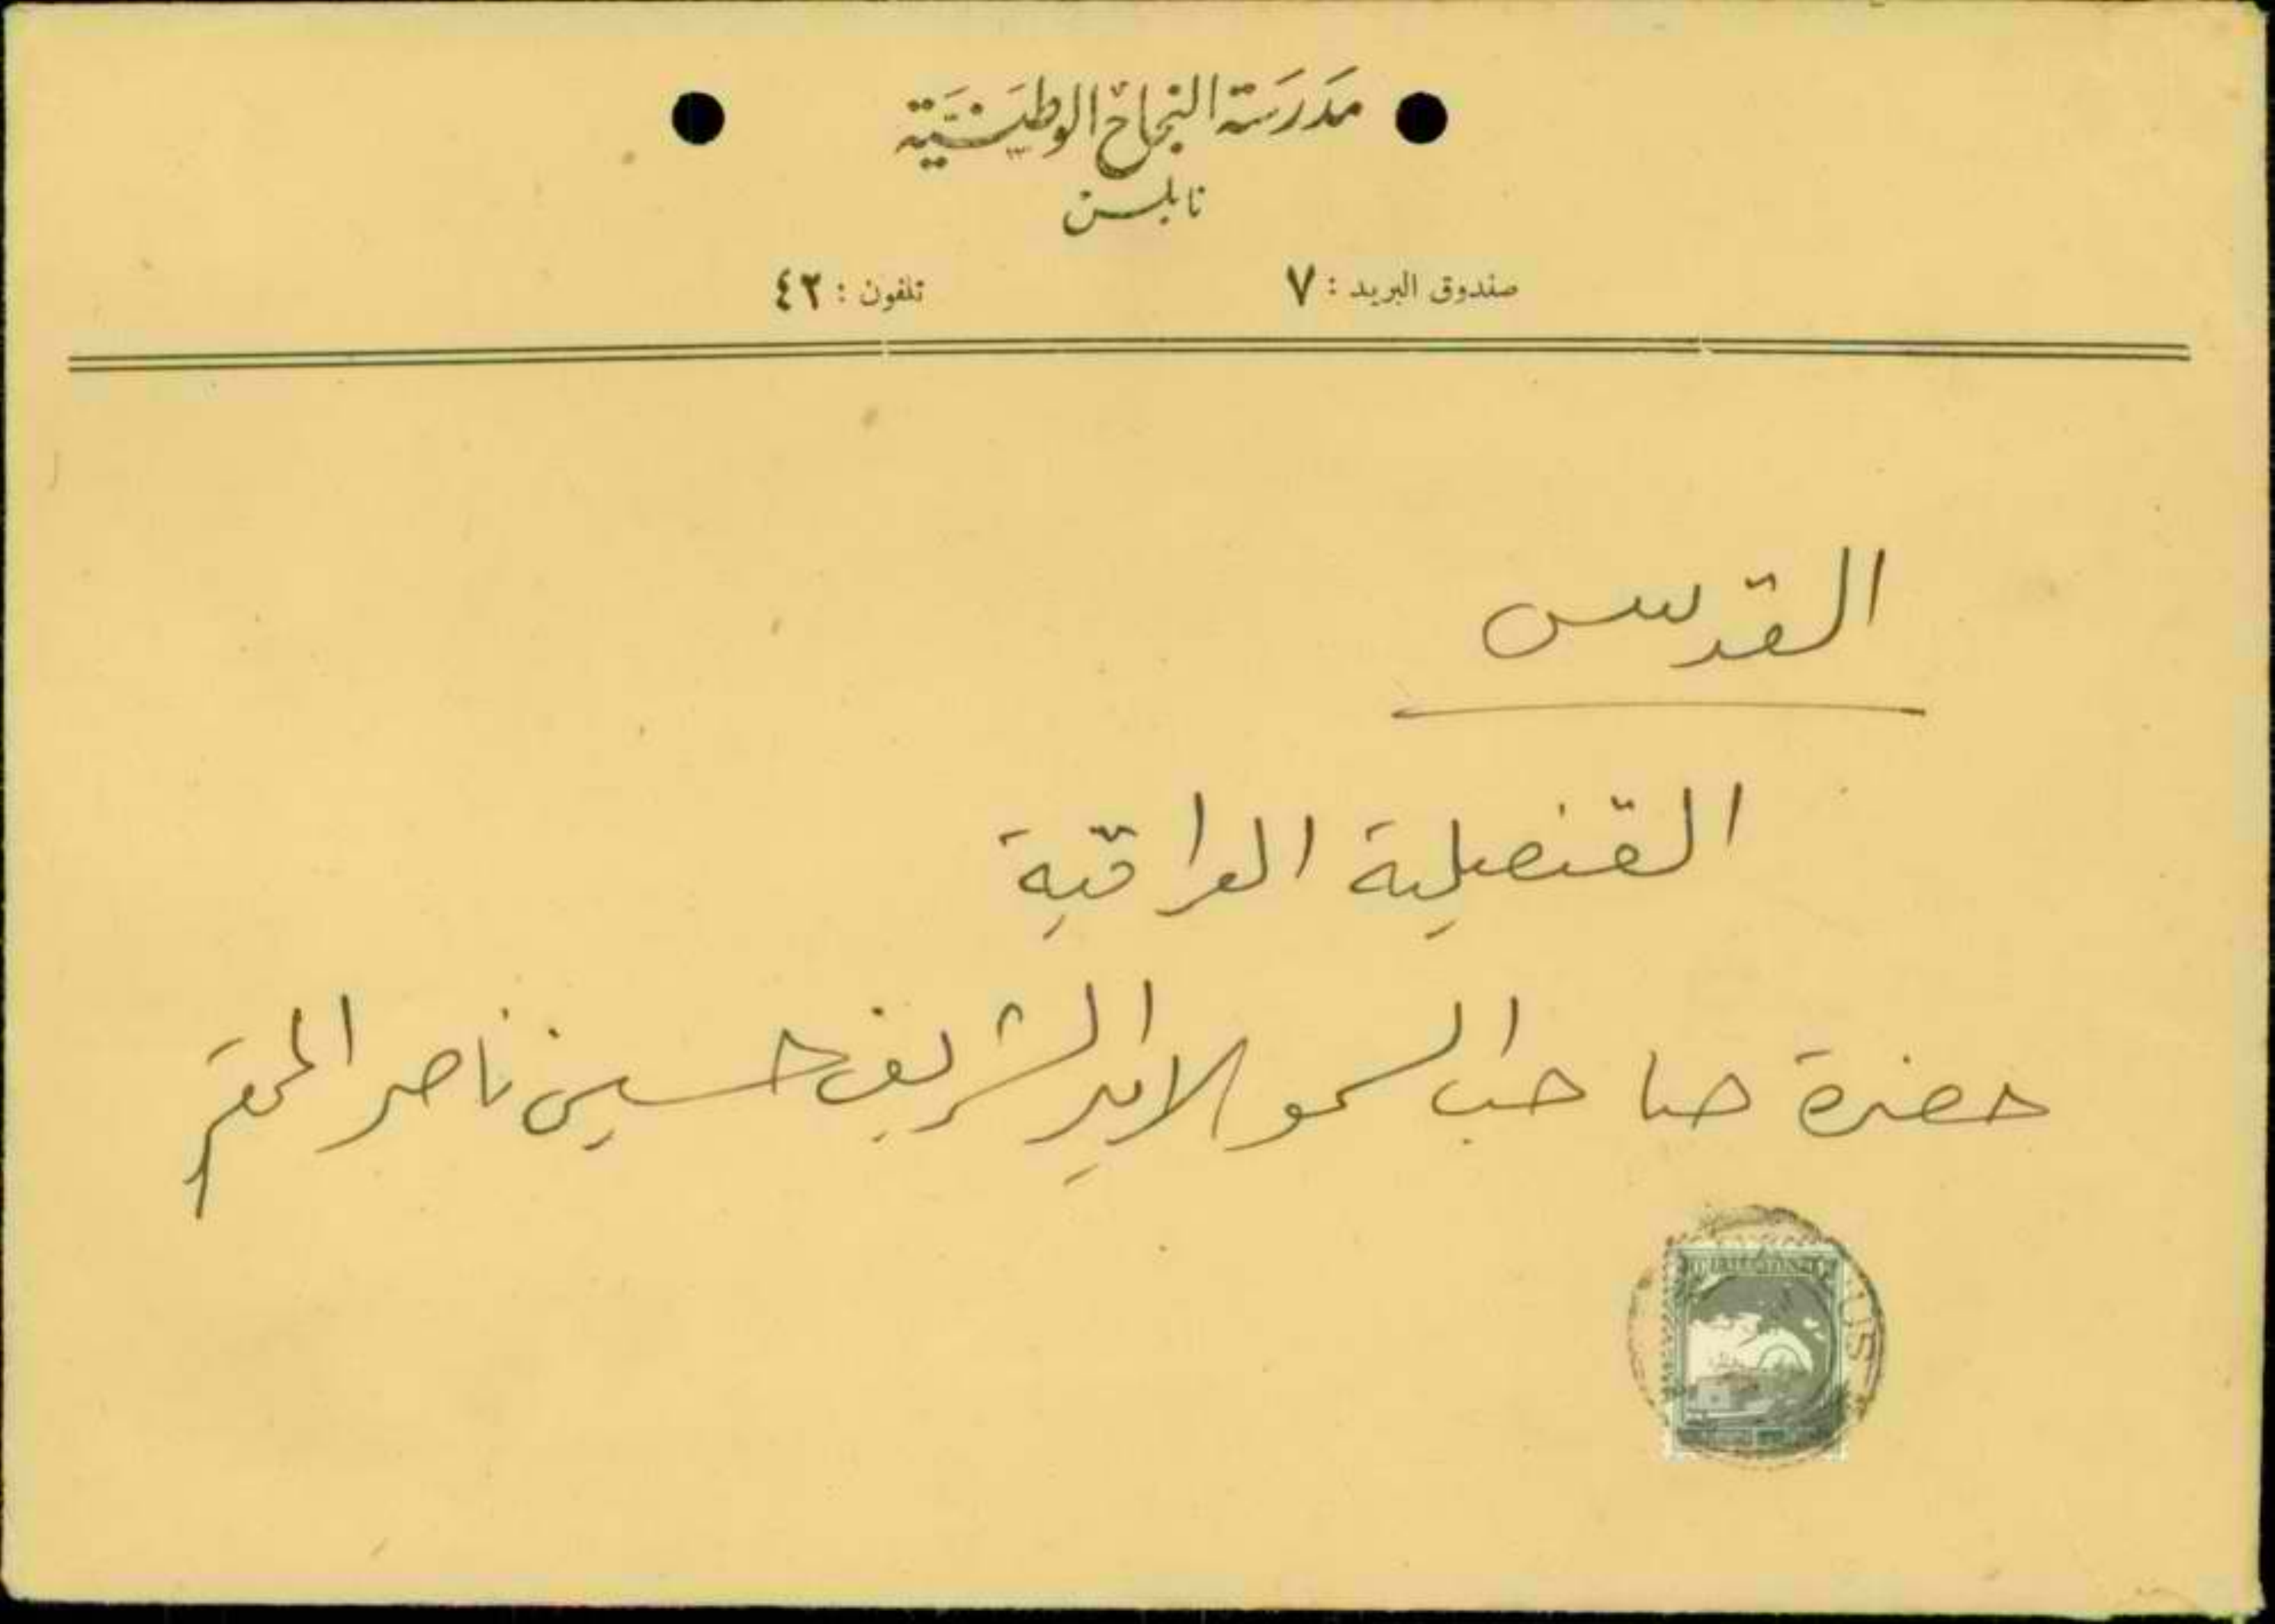 مدرسة النجاح الوطنية
نابلس
صندوق البريد : ٧ تلفون : ٤٢
القدس
القنصلية العراقية
حضرة صاحب السمو الامير الشريف حسين ناصر المحترم
US